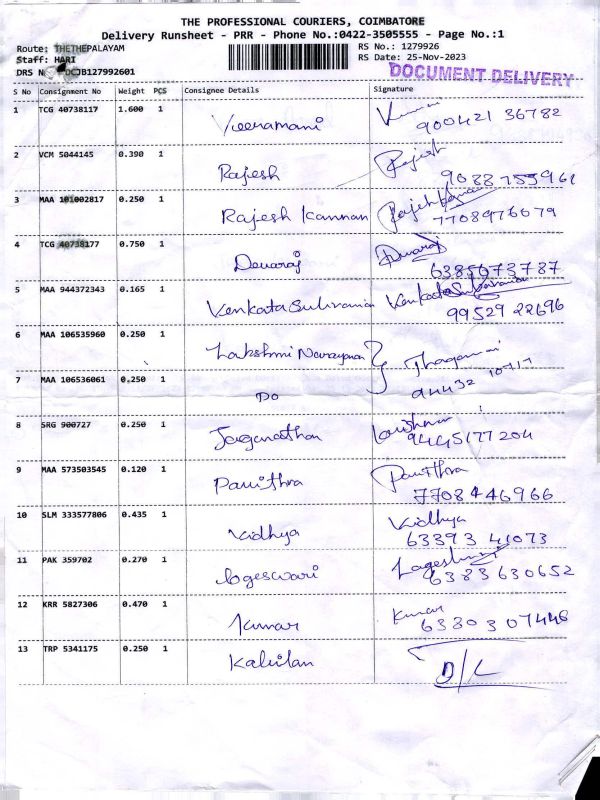 THE PROFESSIONAL COURIERS, COIMBATORE
Delivery Runsheet - PRR - Phone No.:0422-3505555 - Page No.:1
Route: THETHEPALAYAM RS No.: 1279926
Staff: HARI RS Date: 25-Nov-2023
DRS DCJB127992601 DOCUMENT DELIVERY
S No Consignment No Weight PCS Consignee Details Signature
1 TCG 40738117 1.600 1 Veeramani Kumar
900421 36782
2 VCM 5044145 0.390 1 Rajesh Rajesh
9088755961
3 MAA 101002817 0.250 1 Rajesh Kannan Rajesh Kannan
7708976079
4 TCG 40738177 0.750 1 Devaraj Devaraj
6385673787
5 MAA 944372343 0.165 1 Venkata Subramania Venkata Subramanian
99529 22696
6 MAA 106535960 0.250 1 Lakshmi Narayanan
94432 10717
7 MAA 106536061 0.250 1 DO
8 SRG 900727 0.250 1 Jaganathan Krishnan
9445177204
9 MAA 573503545 0.120 1 Pavithra Pavithra
7708446966
10 SLM 333577806 0.435 1 Vidhya Vidhya
63393 41073
11 PAK 359702 0.270 1 logeswari Logeshwari
6383630652
12 KRR 5827306 0.470 1 Kumar Kumar
63803 07446
13 TRP 5341175 0.250 1 Kabilan D/L